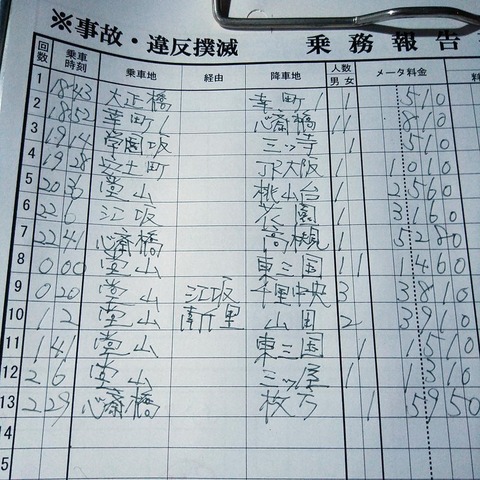 ※事故・違反撲滅 乗務報告
回数 乗車時刻 乗車地 経由 降車地 人数 男 女 メータ料金 料
1 1843 大正橋 幸町1 1 510
2 1852 幸町1 心斎橋 1 1 810
3 1914 学園坂 三ッ寺 1 510
4 1928 安土町 JR大阪 1 1010
5 2036 堂山 桃山台 1 2560
6 226 江坂 花園 1 3160
7 2241 心斎橋 高槻 1 5280
8 000 堂山 東三国 1 1 1460
9 020 堂山 江坂 千里中央 3 3810
10 12 堂山 新里 山田 2 3910
11 141 堂山 東三国 1 510
12 26 堂山 三ッ屋 1 1310
13 229 心斎橋 枚方 1 5950
14
5